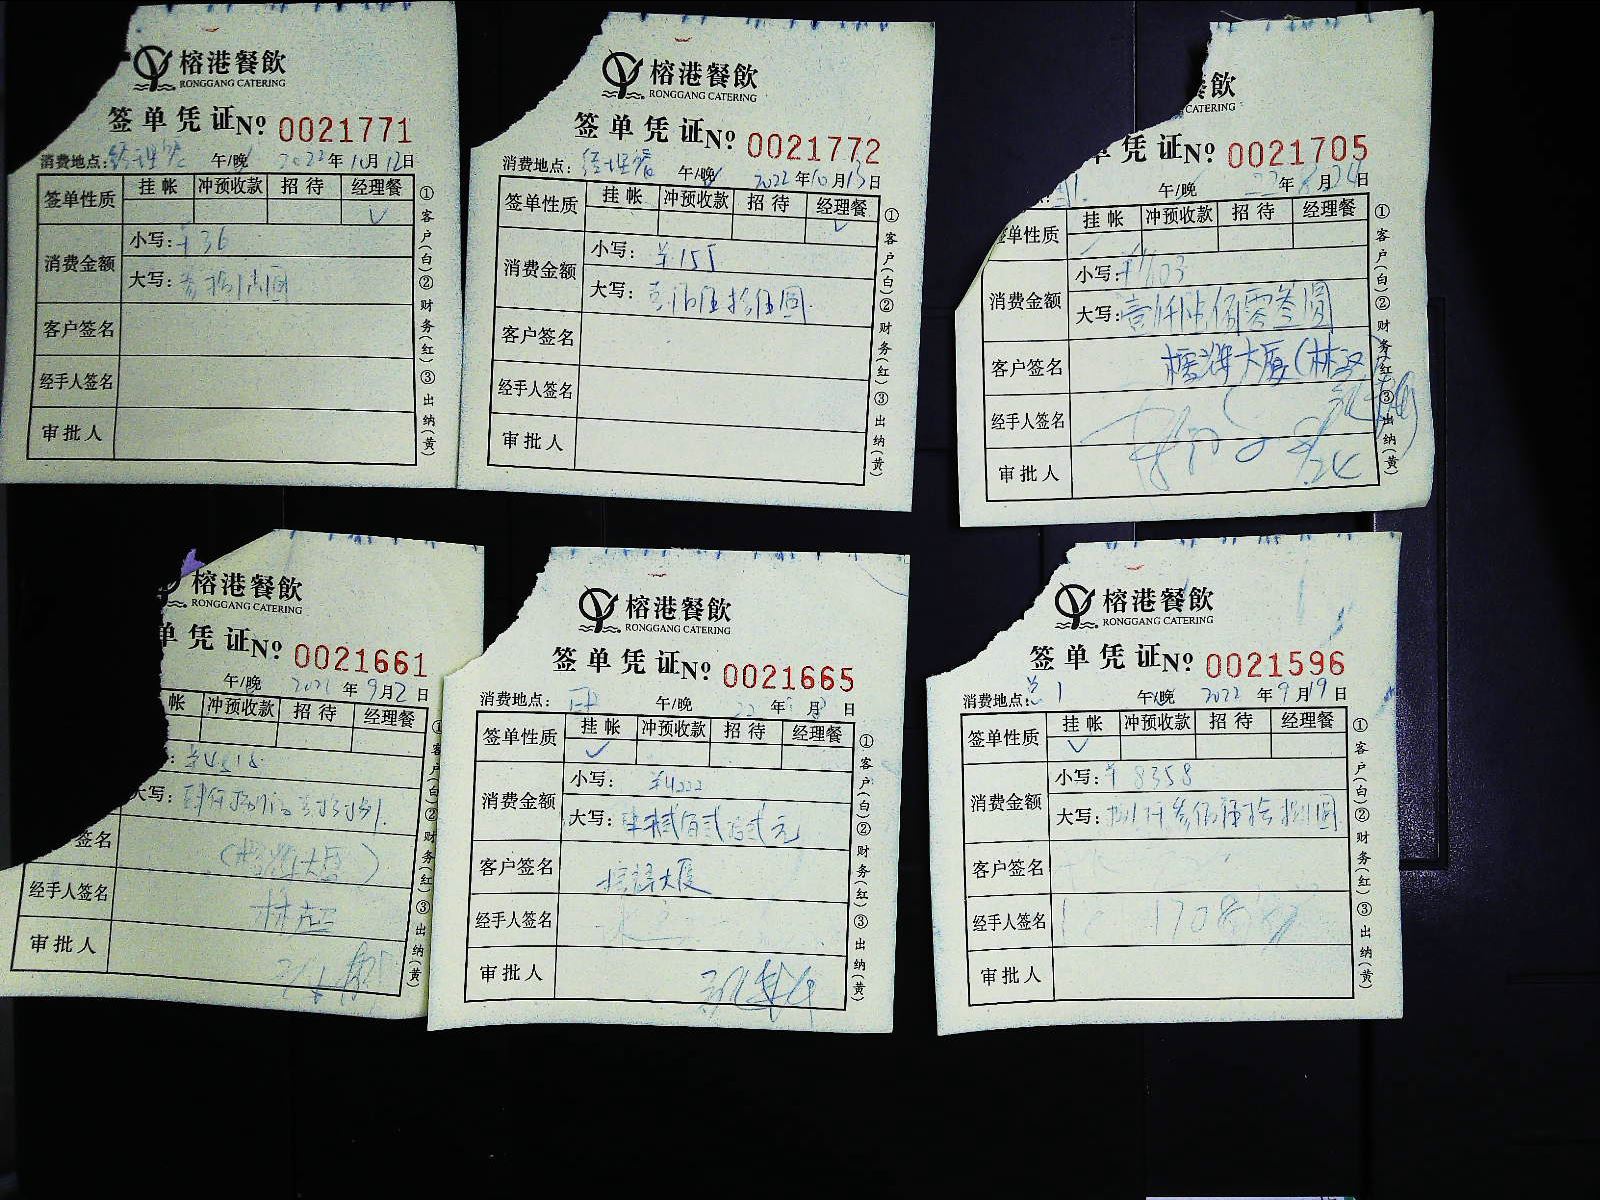 榕港餐飲
RONGGANG CATERING
签单凭证№ 0021771
消费地点: 经理餐 午/晚 2022年10月12日
签单性质 挂帐 冲预收款 招待 经理餐
✓
消费金额 小写: ¥36
大写: 叁拾陆圆
客户签名
经手人签名
审批人
①客户(白)②财务(红)③出纳(黄)
榕港餐飲
RONGGANG CATERING
签单凭证№ 0021772
消费地点: 经理餐 午/晚 2022年10月13日
签单性质 挂帐 冲预收款 招待 经理餐
✓
消费金额 小写: ¥155
大写: 壹佰伍拾伍圆
客户签名
经手人签名
审批人
①客户(白)②财务(红)③出纳(黄)
飲
CATERING
单凭证№ 0021705
午/晚 22年 月24日
单性质 挂帐 冲预收款 招待 经理餐
消费金额 小写: ¥1603
大写: 壹仟陆佰零叁圆
客户签名 榕港大厦(林
经手人签名
审批人
①客户(白)②财务(红)③出纳(黄)
榕港餐飲
RONGGANG CATERING
单凭证№ 0021661
午/晚 年9月2日
帐 冲预收款 招待 经理餐
¥4818
大写:
签名 大厦)
经手人签名 林
审批人
①客户(白)②财务(红)③出纳(黄)
榕港餐飲
RONGGANG CATERING
签单凭证№ 0021665
消费地点: 午/晚 22年 月 日
签单性质 挂帐 冲预收款 招待 经理餐
✓
消费金额 小写: ¥4222
大写: 肆仟贰佰贰拾贰元
客户签名 大厦
经手人签名
审批人
①客户(白)②财务(红)③出纳(黄)
榕港餐飲
RONGGANG CATERING
签单凭证№ 0021596
消费地点: 总1 午/晚 2022年9月19日
签单性质 挂帐 冲预收款 招待 经理餐
✓
消费金额 小写: ¥8358
大写: 捌仟叁佰伍拾捌圆
客户签名
经手人签名
审批人
①客户(白)②财务(红)③出纳(黄)